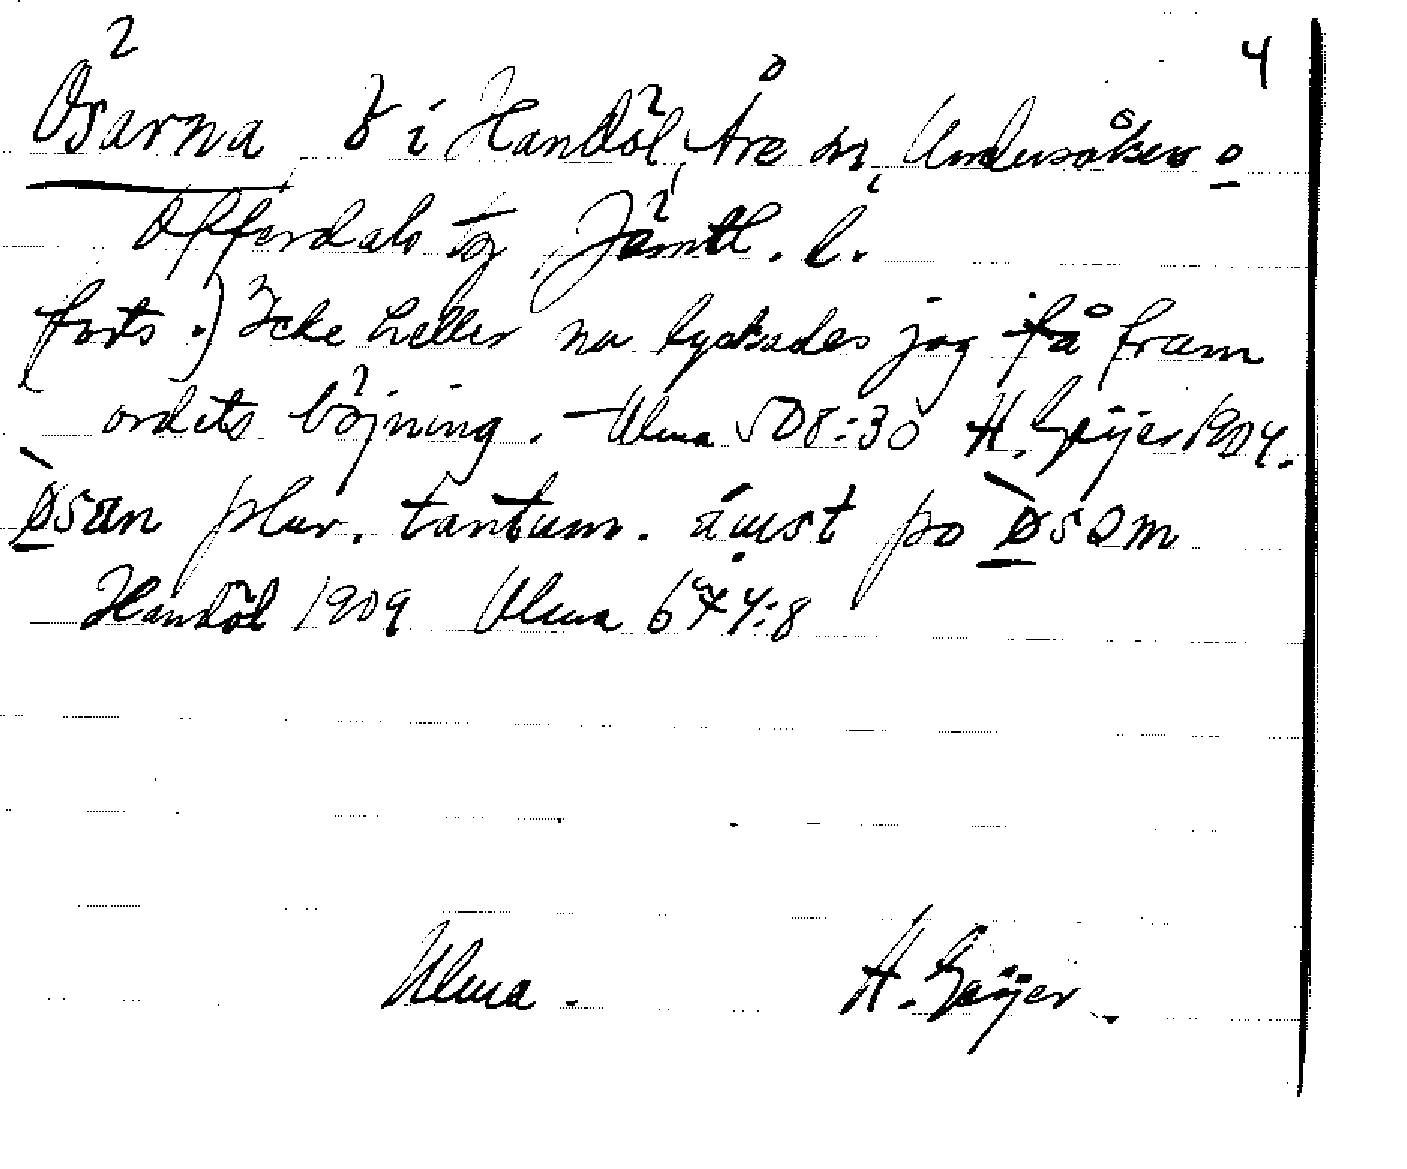 4
Ösarna 8 i Handöl, Åre sn, Undersåkers o
Offerdals tg, Jämtl. l.
(forts.) Icke heller nu lyckades jag få fram
ordets böjning. - Ulma 508:30 H. Geijer 1904.
plur. tantum. po
Handöl 1909 Ulma 644:8
Ulma. H. Geijer.